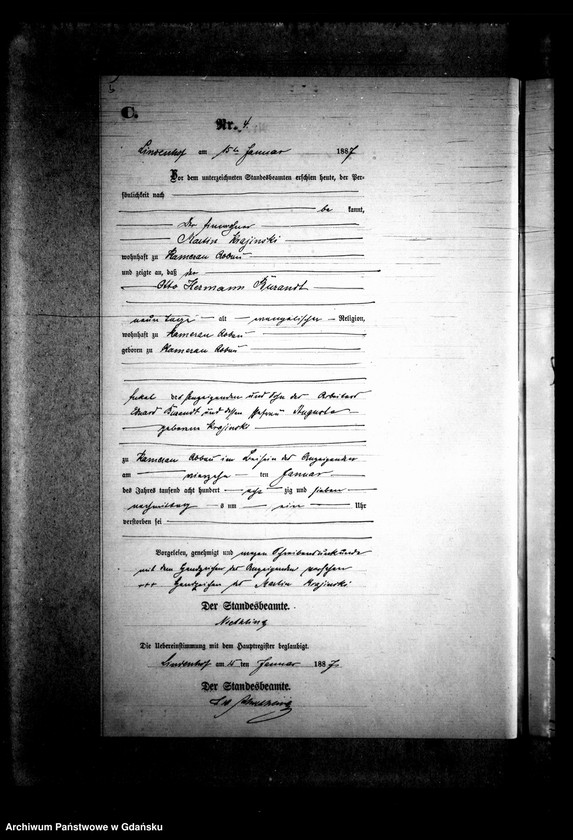 C.
Nr. 4.
Lindenhof am 15 ten Januar 1887
Vor dem unterzeichneten Standesbeamten erschien heute, der Per-
sönlichkeit nach
be kannt,
Der Einwohner
Martin Krajinski
wohnhaft zu Kamerau Abbau
und zeigte an, daß der
Otto Hermann Burandt
neun Tage alt evangelischer Religion,
wohnhaft zu Kamerau Abbau
geboren zu Kamerau Abbau
Enkel des Anzeigenden und Sohn des Arbeiters
Eduard Burandt und dessen Ehefrau Auguste
geborene Krajinski
zu Kamerau Abbau im Beisein des Anzeigenden
am vierzehn ten Januar
des Jahres tausend acht hundert acht zig und sieben
nachmittag s um ein Uhr
verstorben sei
Vorgelesen, genehmigt und wegen Schreibensunkunde
mit dem Handzeichen des Anzeigenden versehen
+++ Handzeichen des Martin Krajinski
Der Standesbeamte.
Die Uebereinstimmung mit dem Hauptregister beglaubigt.
Lindenhof am 15 ten Januar 1887.
Der Standesbeamte.
Archiwum Państwowe w Gdańsku